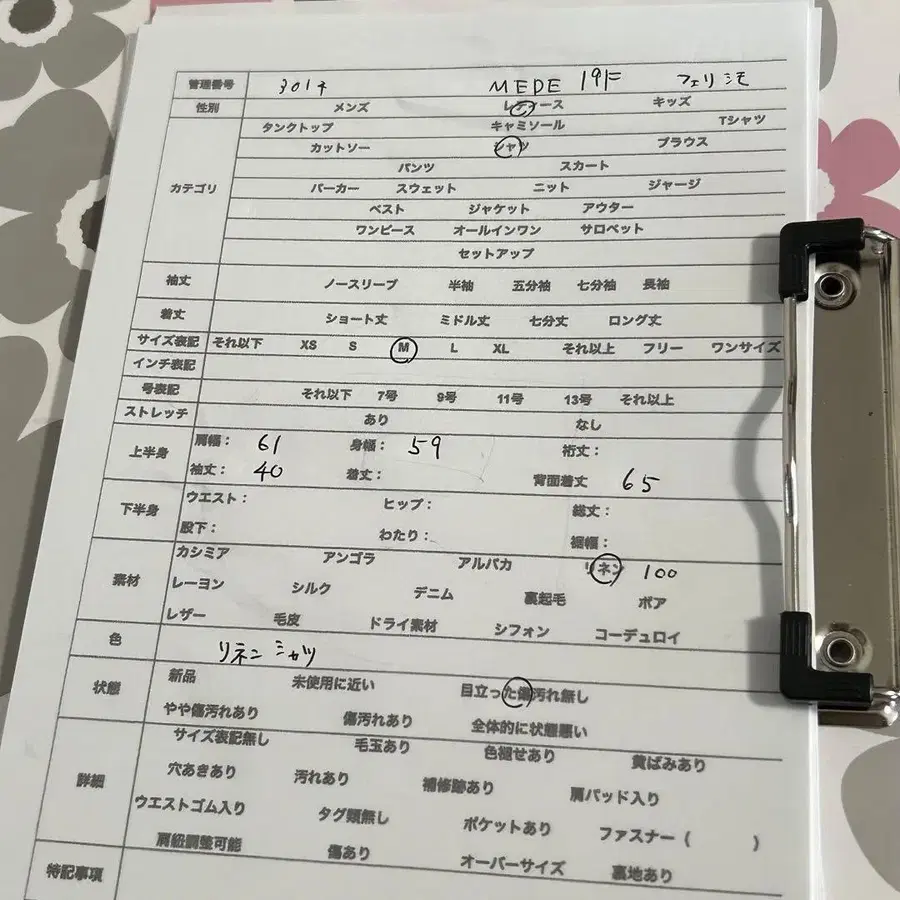 管理番号 3014 MEDE 19F フェリシモ
性別 メンズ レディース キッズ
タンクトップ キャミソール Tシャツ
カットソー シャツ ブラウス
パンツ スカート
カテゴリ パーカー スウェット ニット ジャージ
ベスト ジャケット アウター
ワンピース オールインワン サロペット
セットアップ
袖丈 ノースリーブ 半袖 五分袖 七分袖 長袖
着丈 ショート丈 ミドル丈 七分丈 ロング丈
サイズ表記 それ以下 XS S M L XL それ以上 フリー ワンサイズ
インチ表記
号表記 それ以下 7号 9号 11号 13号 それ以上
ストレッチ あり なし
上半身 肩幅: 61 身幅: 59 裄丈:
袖丈: 40 着丈: 背面着丈 65
下半身 ウエスト: ヒップ: 総丈:
股下: わたり: 裾幅:
素材 カシミア アンゴラ アルパカ リネン 100
レーヨン シルク デニム 裏起毛 ボア
レザー 毛皮 ドライ素材 シフォン コーデュロイ
色 リネンシャツ
状態 新品 未使用に近い 目立った傷汚れ無し
やや傷汚れあり 傷汚れあり 全体的に状態悪い
詳細 サイズ表記無し 毛玉あり 色褪せあり 黄ばみあり
穴あきあり 汚れあり 補修跡あり 肩パッド入り
ウエストゴム入り タグ類無し ポケットあり ファスナー( )
肩紐調整可能 傷あり オーバーサイズ 裏地あり
特記事項